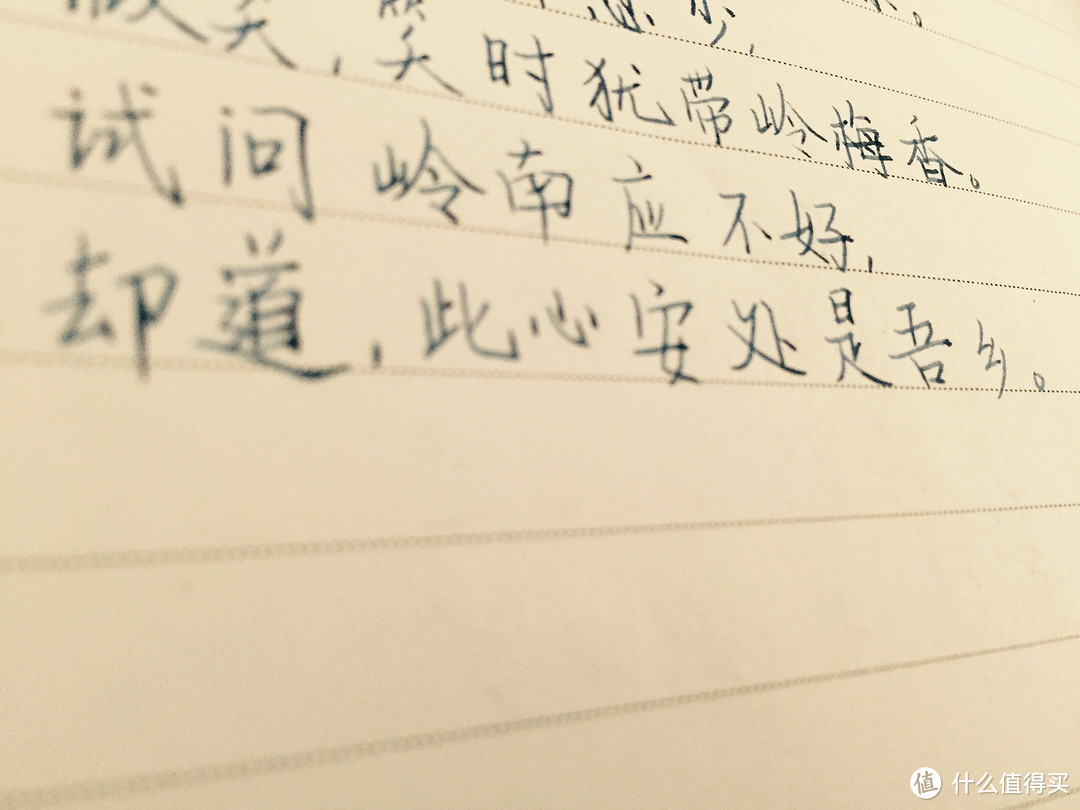 少,
微笑,笑时犹带岭梅香。
试问岭南应不好,
却道,此心安处是吾乡。
值 什么值得买